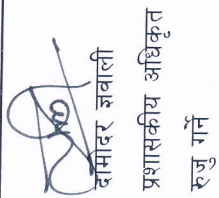 दामोदर ज्ञवाली
प्रशासकीय अधिकृत
रुजु गर्ने